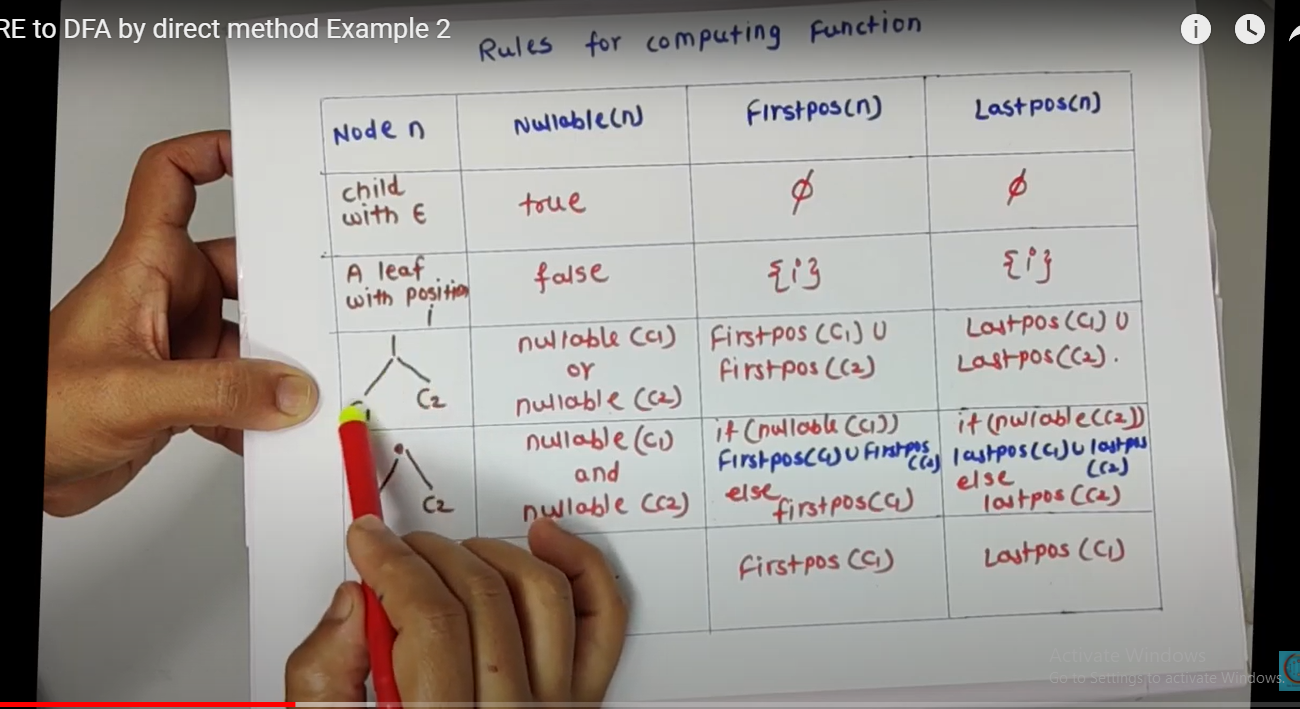 RE to DFA by direct method Example 2
Rules for computing Function
Node n
Nullable(n)
Firstpos(n)
Lastpos(n)
child
with ϵ
true
ϕ
ϕ
A leaf
with position
i
false
{i}
{i}
|
C2
nullable (C1)
or
nullable (C2)
Firstpos (C1) U
firstpos (C2)
Lastpos (C1) U
Lastpos(C2).
•
C2
nullable (C1)
and
nullable (C2)
if (nullable (C1))
Firstpos(C1) U Firstpos
(C2)
else
firstpos(C1)
if (nullable(C2))
lastpos(C1) U lastpos
(C2)
else
lastpos (C2)
Firstpos (C1)
Lastpos (C1)
Activate Windows
Go to Settings to activate Windows.